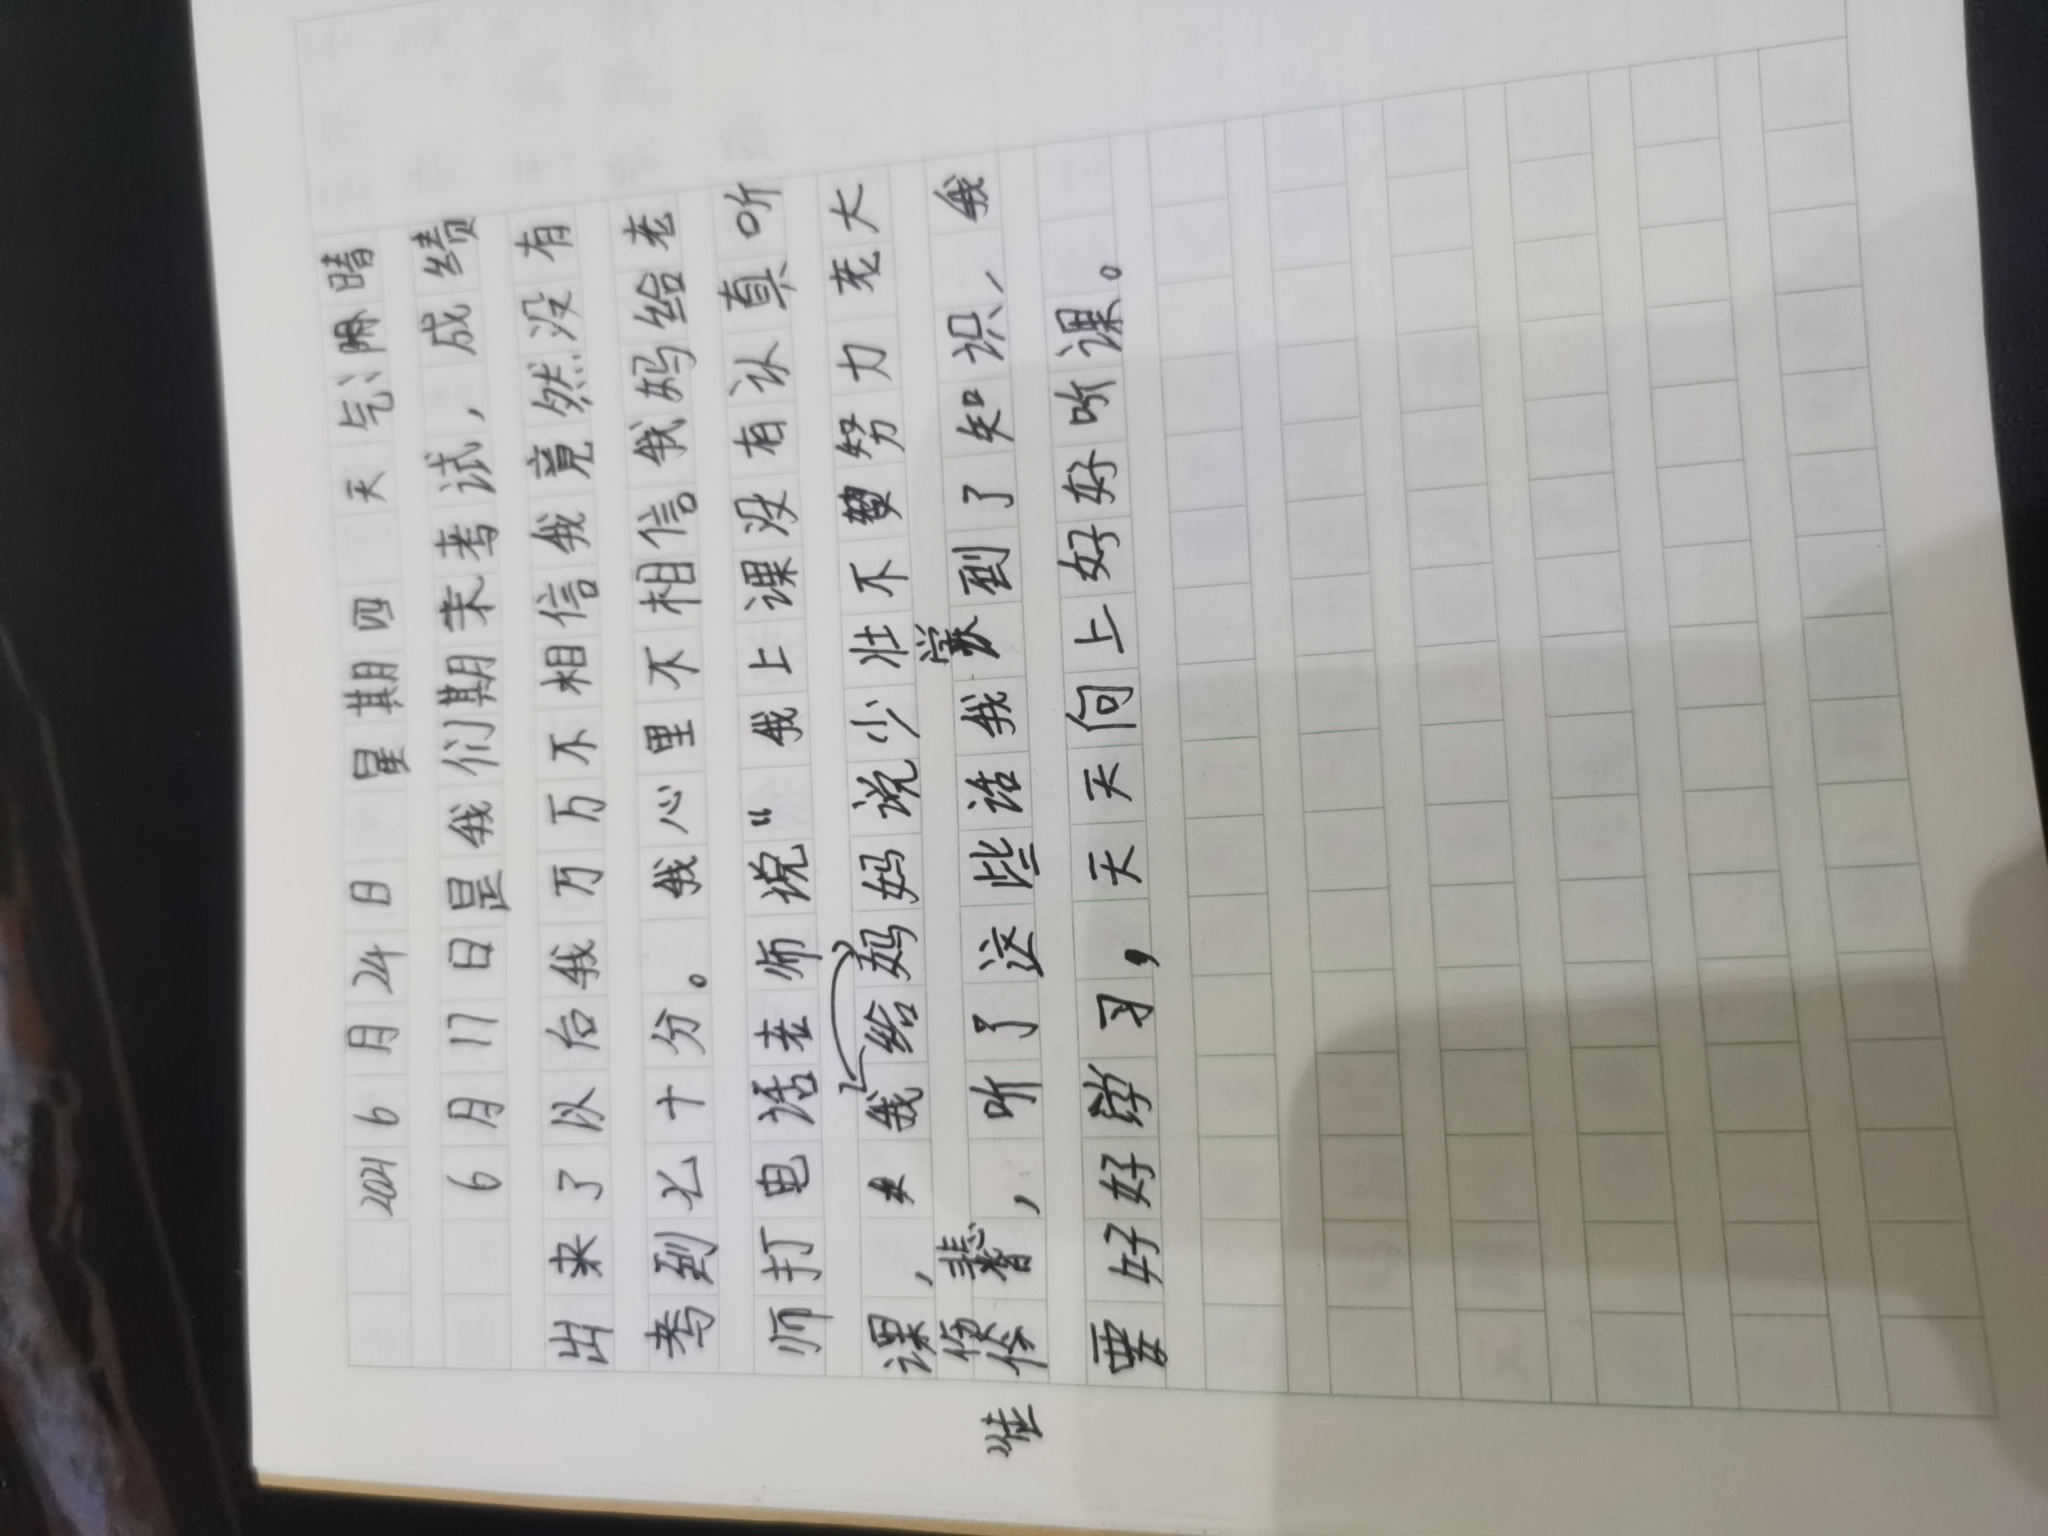 2021 6 月 24 日 星期四 天气:阴晴
6月17日是我们期末考试,成绩
出来了以后我万万不相信我竟然没有
考到七十分。我心里不相信我妈给老
师打电话老师说“我上课没有认真听
课,我给妈妈说少壮不努力老大
徒伤悲,听了这些话我学到了知识、我
要好好学习,天天向上好好听课。